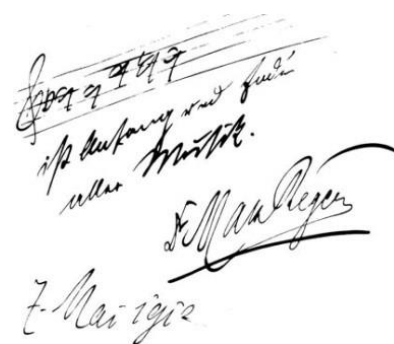 ist Anfang und Ende
aller Musik.
Dr Max Reger
7. Mai 1912